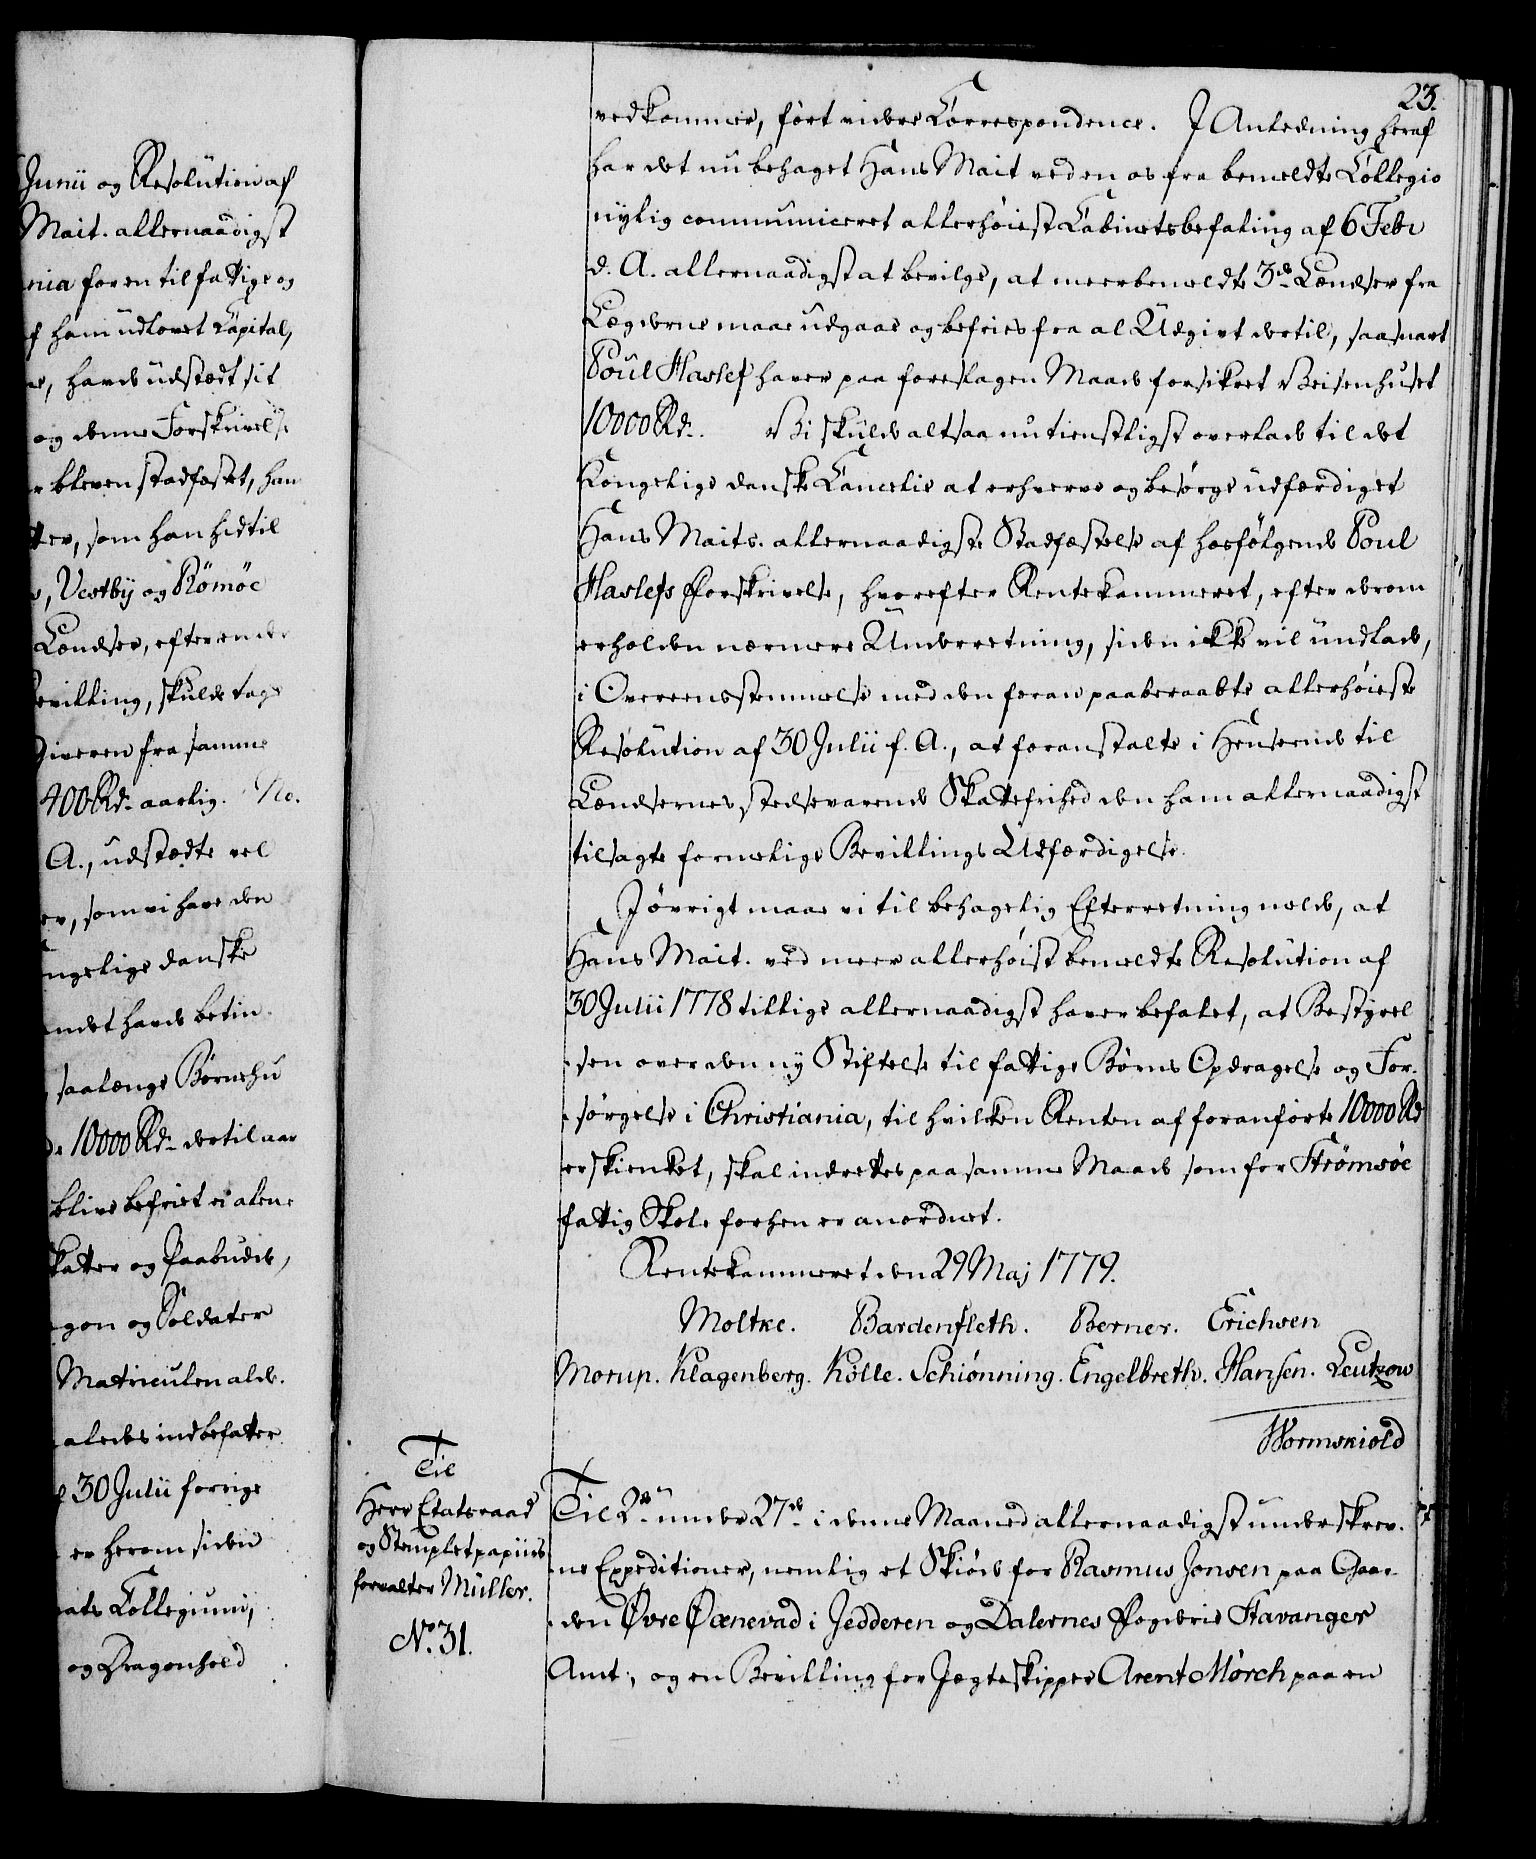 Junii og Resolution af
Mait. allernaadigst
nia foren til fattige og
f ham udlovet Capital,
havde udstædt sit
og denne Forskrivelse
bleven stadfæstet, han
som han hidtil
Vestby og Römöe
Lændser, efter ende
evilling, skulde tage
Giveren fra samme
400 Rd. aarlig. No.
A., udstædte vel
er, som vi have den
ngelige danske
ndet havde betin
saalænge Börnehu
10000 Rd. dertil aar
blive befriet ei alene
katter og Paabude,
gon og Soldater
Matriculen alde.
aledes indbefatter
30 Julii forrige
er herom siden
ats Collegium,
og Dragonhold
23.
vedkommer, fört videre Correspondence. I Anledning heraf
har det nu behaget Hans Mait ved en os fra bemeldte Collegio
nylig communiceret allerhöiest Cabinetsbefaling af 6 Febr
d. A. allernaadigst at bevilge, at meerbemeldte 3de Lændser fra
Lægderne maae udgaae og befries fra al Udgivt dertil, saasnart
Poul Haslef haver paa foreslagen Maade forsikret Veisenhuset
10000 Rd. Vi skulde altsaa nu tienstligst overlade til det
Kongelige danske Cancelie at erhverve og besörge udfærdiget
Hans Maits. allernaadigste Stadfæstelse af hosfölgende Poul
Haslefs Forskrivelse, hvorefter Rentekammeret, efter derom
erholden nærmere Underretning, siden ikke vil undlade,
i Overeensstemmelse med den foran paaberaabte allerhöieste
Resolution af 30 Julii f. A., at foranstalte i Henseende til
Lændsernes stedsevarende Skattefrihed den ham allernaadigst
tilsagte formelige Bevillings Udfærdigelse.
Iövrigt maae vi til behagelig Efterretning melde, at
Hans Mait. ved meer allerhöist bemeldte Resolution af
30 Julii 1778 tillige allernaadigst haver befalet, at Bestyrel
sen over den ny Stiftelse til fattige Börns Opdragelse og For-
sörgelse i Christiania, til hvilken Renten af foranförte 10000 Rd
er skienket, skal indrettes paa samme Maade som for Strömsöe
fattig Skole forhen er anordnet.
Rentekammeret den 29 Maj 1779.
Moltke. Bardenfleth. Berner. Erichsen
Morup. Klagenberg. Kölle. Schiønning. Engelbreth. Hansen. Leutzow
Wormskiold
Til
Herr Etatsraad
og Stempletpapiirs
forvalter Müller.
No. 31.
Til 2de under 27de i denne Maaned allernaadigst underskrev.
ne Expeditioner, nemlig et Skiöde for Rasmus Jonsen paa Gaar-
den Øvre Oenevad i Jedderen og Dalernes Fogderie Stavanger
Amt, og en Bevilling for Jægteskipper Arent Mörch paa en